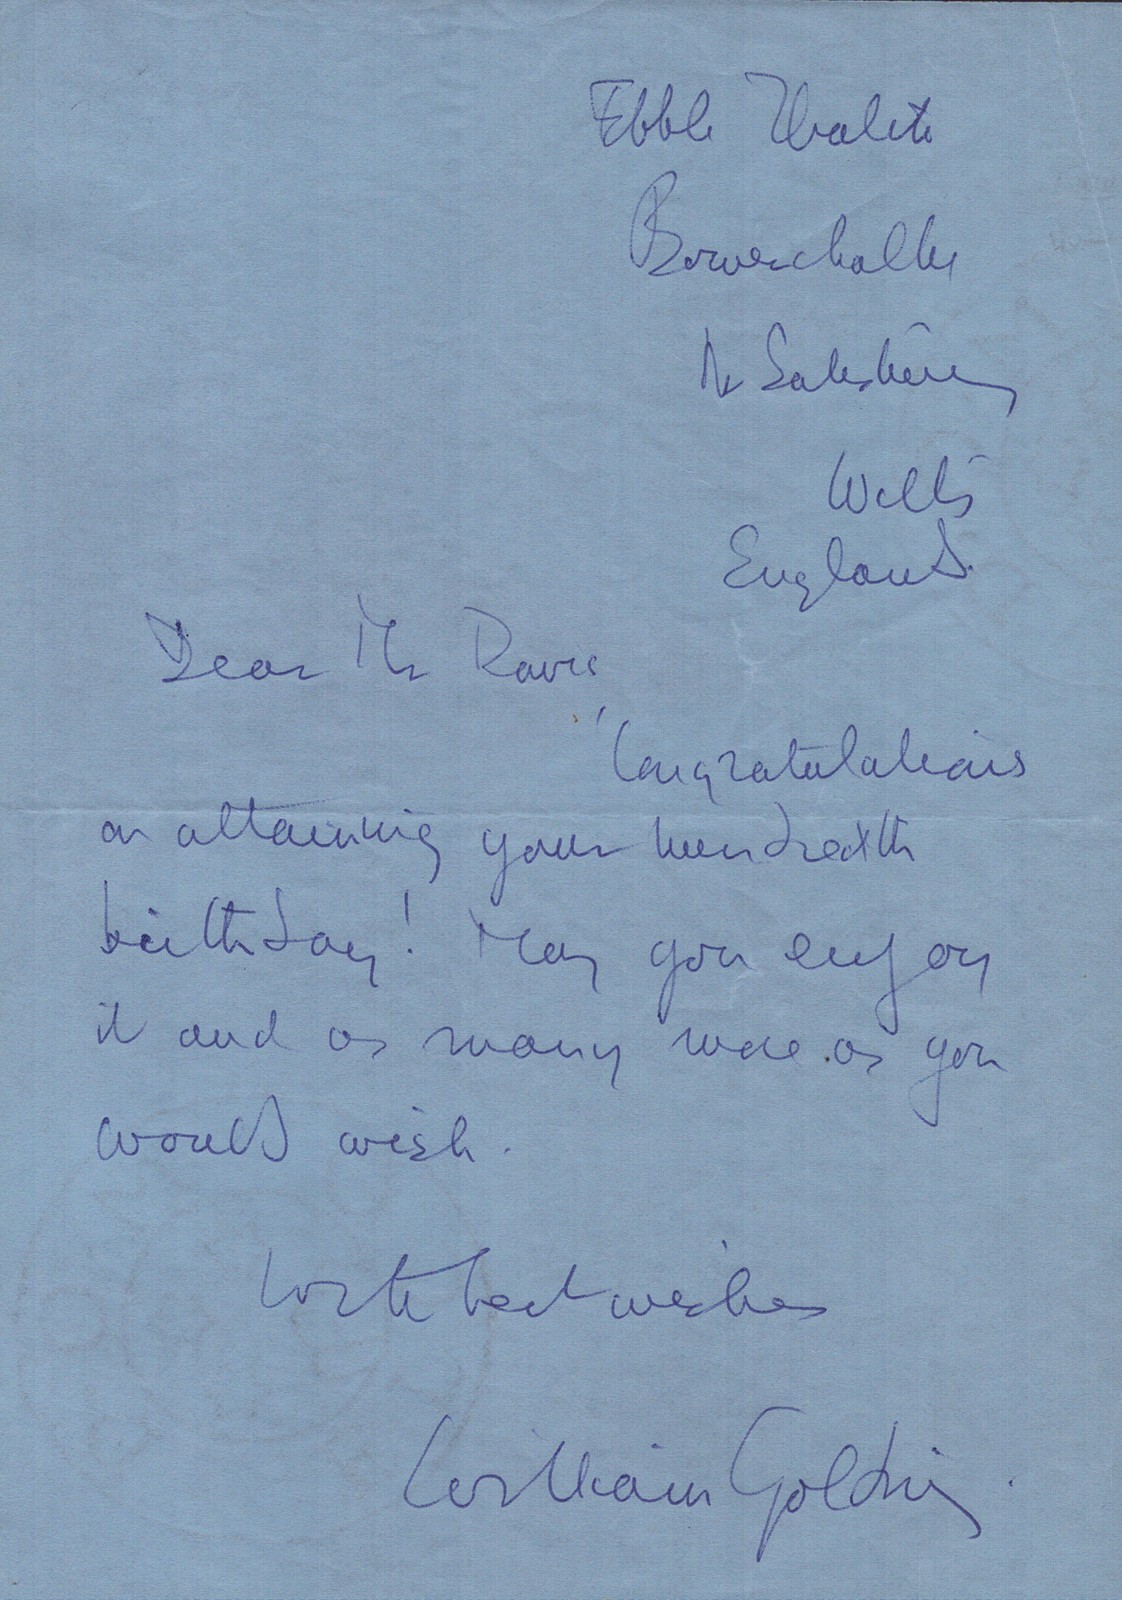 Ebble Thatch
Bowerchalke
Nr Salisbury
Wilts
England.
Dear Mr Davis,
Congratulations
on attaining your hundredth
birthday! May you enjoy
it and as many more as you
would wish.
With best wishes
William Golding.